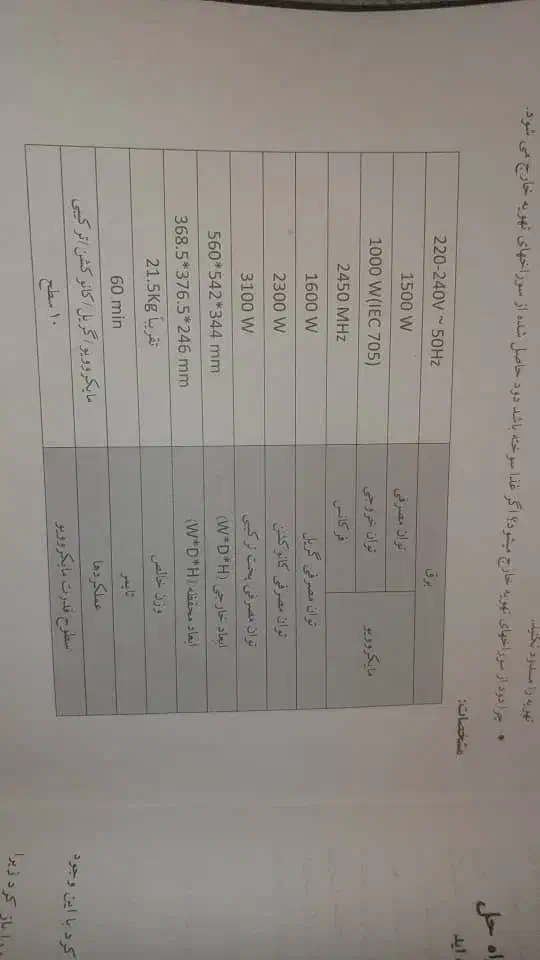 تهویه را مسدود نکنید.
• چرا دود از سوراخهای تهویه خارج میشود؟ اگر غذا سوخته باشد دود حاصل شده از سوراخهای تهویه خارج می شود.
مشخصات:
برق 220-240V ~ 50Hz
مایکروویو
توان مصرفی 1500 W
توان خروجی 1000 W(IEC 705)
فرکانس 2450 MHz
توان مصرفی گریل 1600 W
توان مصرفی کانوکشن 2300 W
توان مصرفی پخت ترکیبی 3100 W
ابعاد خارجی (W*D*H) 560*542*344 mm
ابعاد محفظه (W*D*H) 368.5*376.5*246 mm
وزن خالص تقریباً 21.5Kg
تایمر 60 min
عملکردها مایکروویو/گریل/کانوکشن/ترکیبی
سطوح قدرت مایکروویو ۱۰ سطح
اه حل
اید
کرد با این وجود
باز کرد زیرا